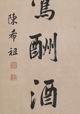 酬酒
陳希祖